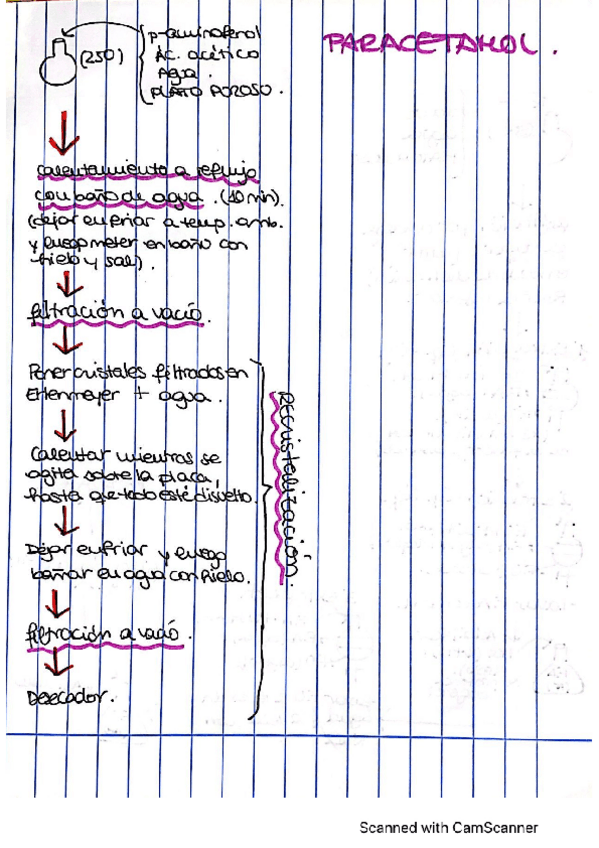 PARACETAMOL.
(250)
p-aminofenol
Ác. acético
Agua.
PLATO POROSO.
calentamiento a reflujo
con baño de agua. (10 min).
(dejar enfriar a temp. amb.
y luego meter en baño con
hielo y sal).
filtración a vacío.
Poner cristales filtrados en
Erlenmeyer + agua.
Calentar mientras se
agita sobre la placa,
hasta que todo esté disuelto.
Dejar enfriar y luego
bañar en agua con hielo.
filtración a vacío.
Desecador.
Recristalización.
Scanned with CamScanner